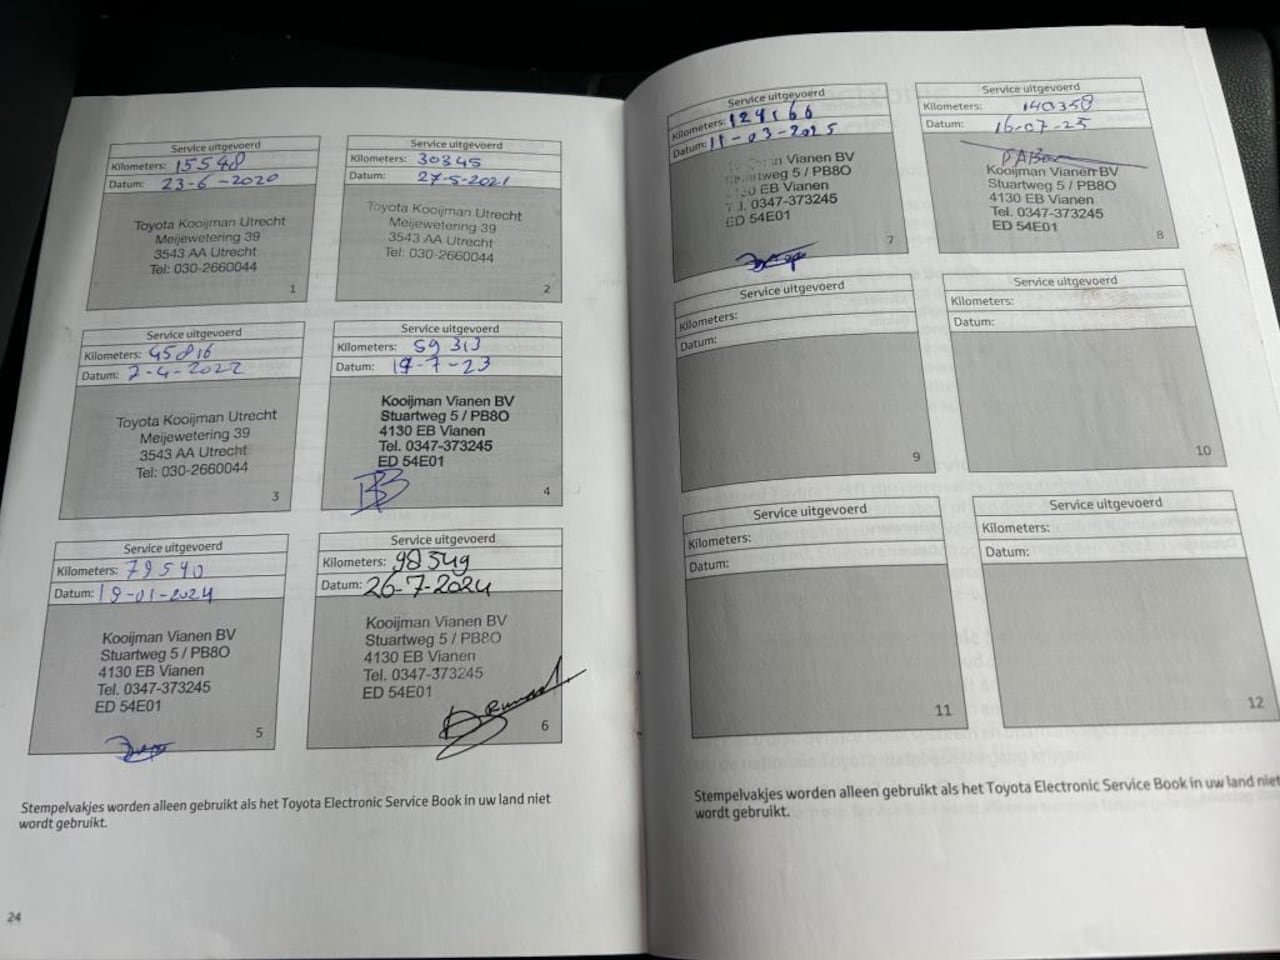 Service uitgevoerd
Kilometers: 15548
Datum: 23-6-2020
Toyota Kooijman Utrecht
Meijewetering 39
3543 AA Utrecht
Tel: 030-2660044
1
Service uitgevoerd
Kilometers: 30345
Datum: 27-5-2021
Toyota Kooijman Utrecht
Meijewetering 39
3543 AA Utrecht
Tel: 030-2660044
2
Service uitgevoerd
Kilometers: 45816
Datum: 2-4-2022
Toyota Kooijman Utrecht
Meijewetering 39
3543 AA Utrecht
Tel: 030-2660044
3
Service uitgevoerd
Kilometers: 59313
Datum: 19-7-23
Kooijman Vianen BV
Stuartweg 5 / PB8O
4130 EB Vianen
Tel. 0347-373245
ED 54E01
4
Service uitgevoerd
Kilometers: 79540
Datum: 19-01-2024
Kooijman Vianen BV
Stuartweg 5 / PB8O
4130 EB Vianen
Tel. 0347-373245
ED 54E01
5
Service uitgevoerd
Kilometers: 98349
Datum: 26-7-2024
Kooijman Vianen BV
Stuartweg 5 / PB8O
4130 EB Vianen
Tel. 0347-373245
ED 54E01
6
Stempelvakjes worden alleen gebruikt als het Toyota Electronic Service Book in uw land niet
wordt gebruikt.
24
Service uitgevoerd
Kilometers: 124166
Datum: 11-03-2025
Vianen BV
5 / PB8O
EB Vianen
0347-373245
ED 54E01
7
Service uitgevoerd
Kilometers: 140358
Datum: 16-07-25
Kooijman Vianen BV
Stuartweg 5 / PB8O
4130 EB Vianen
Tel. 0347-373245
ED 54E01
8
Service uitgevoerd
Kilometers:
Datum:
9
Service uitgevoerd
Kilometers:
Datum:
10
Service uitgevoerd
Kilometers:
Datum:
11
Service uitgevoerd
Kilometers:
Datum:
12
Stempelvakjes worden alleen gebruikt als het Toyota Electronic Service Book in uw land niet
wordt gebruikt.